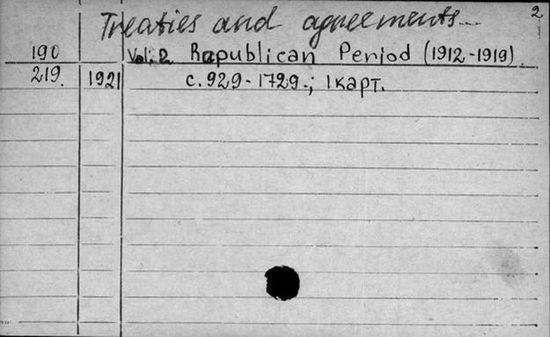 2
Treaties and agreements...
190 Vol. 2 Republican Period (1912-1919)
219. 1921 c. 929-1729.; 1 карт.